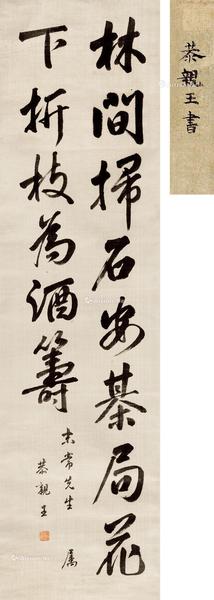 林間掃石安棊局花
下折枝為酒籌
末常先生 属
恭親王
恭親王書